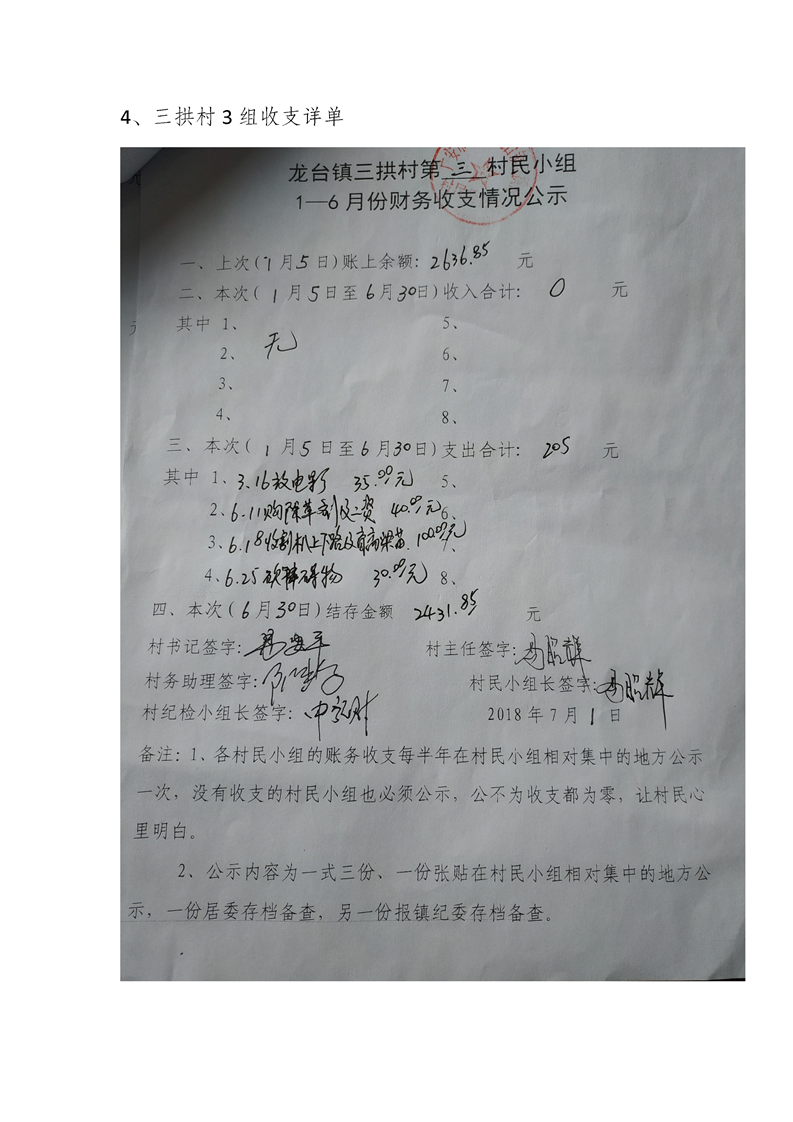 4、三拱村 3 组收支详单
龙台镇三拱村第 三 村民小组
1—6 月份财务收支情况公示
一、上次( 1 月 5 日)账上余额: 2636.85 元
二、本次( 1 月 5 日至 6 月 30 日)收入合计: 0 元
其中 1、 5、
2、 无 6、
3、 7、
4、 8、
三、本次( 1 月 5 日至 6 月 30 日)支出合计: 205 元
其中 1、3.16放电影 35.00元 5、
2、6.11购除草剂及工资 40.00元 6、
3、6.18收割机上下路及育高粱苗 100.00元 7、
4、6.25砍障碍物 30.00元 8、
四、本次( 6 月 30 日)结存金额 2431.85 元
村书记签字: 村主任签字:
村务助理签字: 村民小组长签字:
村纪检小组长签字: 2018 年 7 月 1 日
备注: 1、各村民小组的账务收支每半年在村民小组相对集中的地方公示
一次，没有收支的村民小组也必须公示，公不为收支都为零，让村民心
里明白。
2、公示内容为一式三份、一份张贴在村民小组相对集中的地方公
示，一份居委存档备查，另一份报镇纪委存档备查。